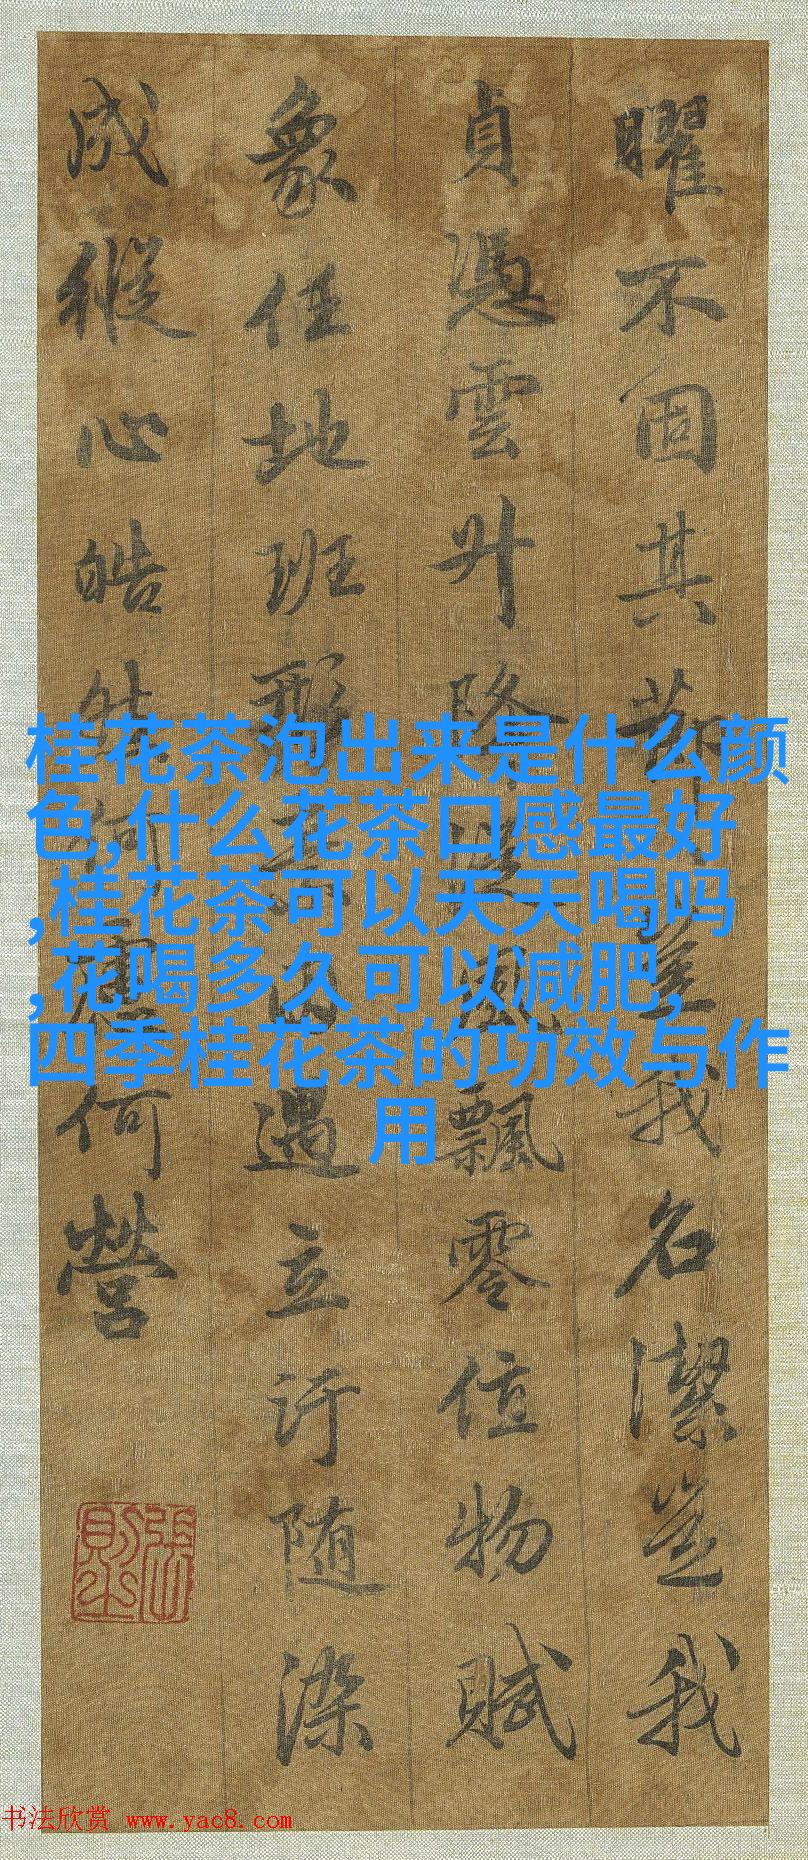 曜不固其節豈我名潔豈我
貞憑雲升降從風飄零值物賦
象任地班形素因遇立汙随染
成縱心皓然何慮何營
桂花茶泡出来是什么颜
色,什么花茶口感最好
,桂花茶可以天天喝吗
,花喝多久可以减肥,
四季桂花茶的功效与作
用
书法欣赏 www.yac8.com